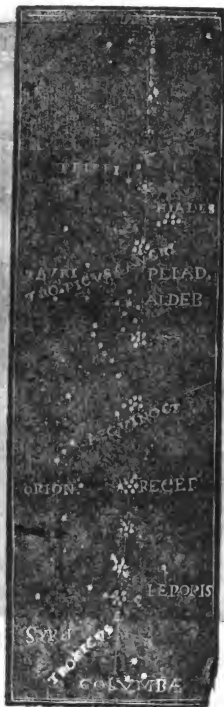 HIADES
TAVRI
TROPICVS CANCRI
PLEAD.
ALDEB
ÆQVINOCT
ORION.
REGEL
LEPORIS
SYRI
TROPICVS
COLVMBÆ